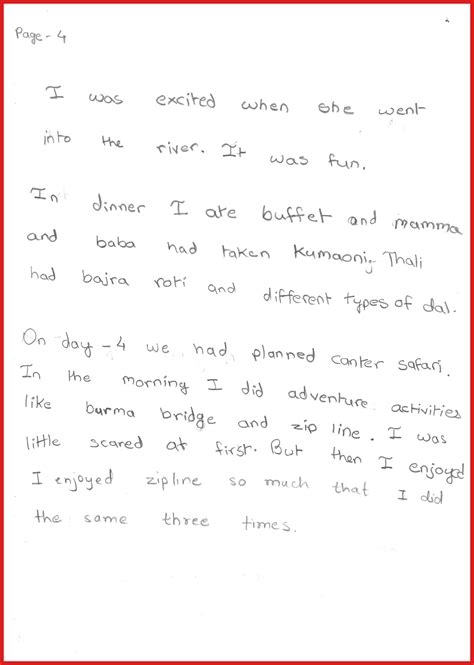 Page - 4
I was excited when she went
into the river. It was fun.
In dinner I ate buffet and mamma
and baba had taken Kumaoni Thali
had bajra roti and different types of dal.
On day - 4 we had planned canter safari.
In the morning I did adventure activities
like burma bridge and zip line. I was
little scared at first. But then I enjoyed
I enjoyed zipline so much that I did
the same three times.